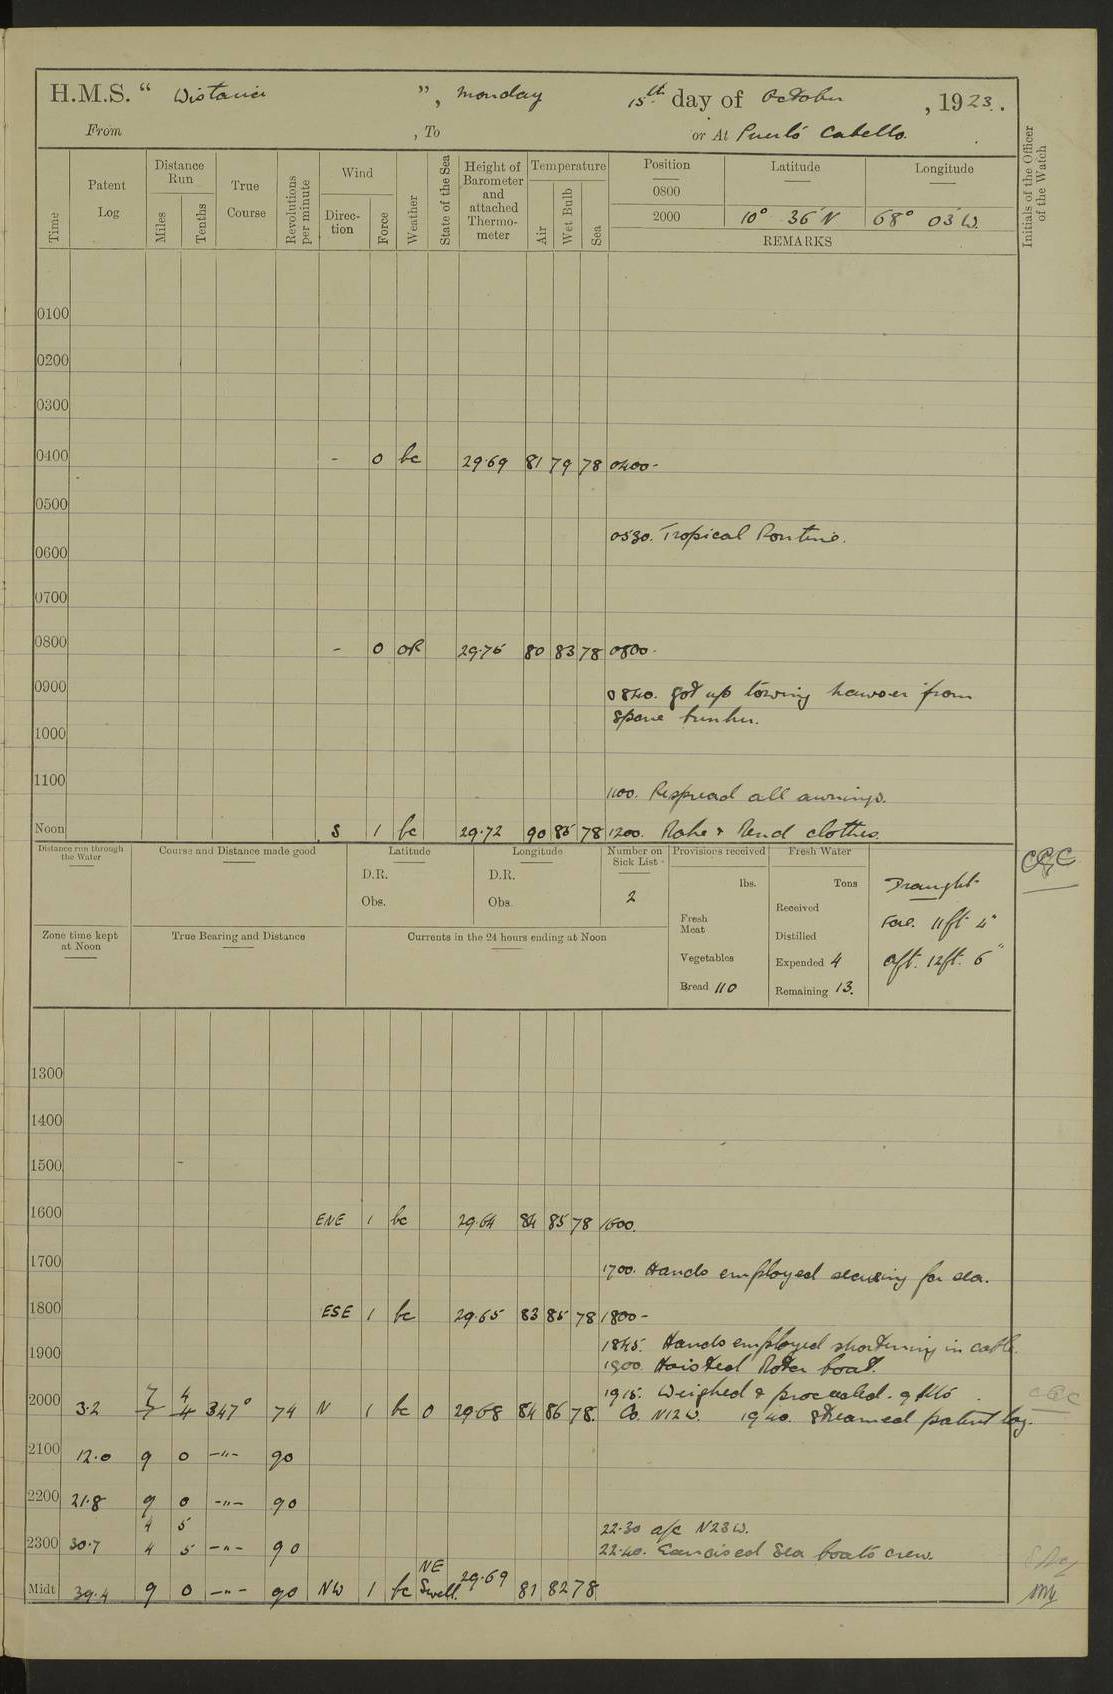 H.M.S. " Wistaria ", Monday 15th day of October, 1923.
From , To or At Puerto Cabello.
Time
Patent Log
Distance Run
Miles
Tenths
True Course
Revolutions per minute
Wind
Direction
Force
Weather
State of the Sea
Height of Barometer and attached Thermometer
Temperature
Air
Wet Bulb
Sea
Position Latitude Longitude
0800
2000 10° 36' N 68° 03' W.
REMARKS
Initials of the Officer of the Watch
0100
0200
0300
0400 - 0 bc 29.69 81 79 78 0400-
0500
0530. Tropical Routine.
0600
0700
0800 - 0 oR 29.76 80 83 78 0800-
0900 0840. Got up towing hawser from
spare bunker.
1000
1100 1100. Respread all awnings.
Noon S 1 bc 29.72 90 85 78 1200. Make & Mend clothes.
Distance run through the Water
Course and Distance made good
Latitude
D.R.
Obs.
Longitude
D.R.
Obs.
Number on Sick List
2
Provisions received
lbs.
Fresh Meat
Vegetables
Bread 110
Fresh Water
Tons
Received
Distilled
Expended 4
Remaining 13.
Draught
For. 11ft 4"
Aft. 12ft. 6"
Zone time kept at Noon
True Bearing and Distance
Currents in the 24 hours ending at Noon
1300
1400
1500
1600 ENE 1 bc 29.64 84 85 78 1600.
1700 1700. Hands employed securing for sea.
1800 ESE 1 bc 29.65 83 85 78 1800-
1845. Hands employed shortening in cable.
1900 1900. Hoisted Motor boat.
1915. Weighed & proceeded.
7 4
2000 3.2 7 4 347° 74 N 1 bc 0 29.68 84 86 78. Co. N12W. 1940. Streamed patent log.
2100 12.0 9 0 -"- 90
2200 21.8 9 0 -"- 90
4 5 22.30 a/c N23W.
2300 30.7 4 5 -"- 90 22.40. Exercised Sea boats crew.
Midt 39.4 9 0 -"- 90 NW 1 bc NE Swell. 29.69 81 82 78